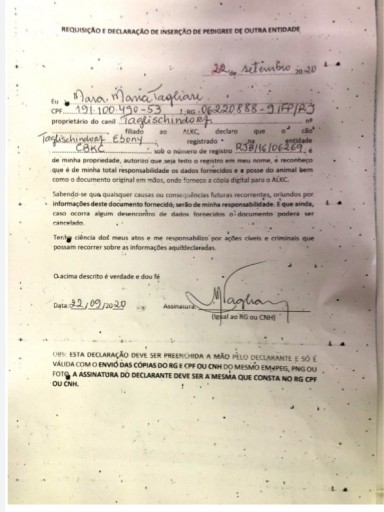 REQUISIÇÃO E DECLARAÇÃO DE INSERÇÃO DE PEDIGREE DE OUTRA ENTIDADE
22 de setembro 20 20
Eu Mara Mania Tagliari
CPF 191-100-490-53 RG 06220888-9 IFP/RJ
proprietário do canil Taglischindorf nº
filiado ao ALKC, declaro que o cão
Taglischindorf Ebony registrado na entidade
CBKC sob o número de registro RJB/16/06269, é
de minha propriedade, autorizo que seja feito o registro em meu nome, e reconheço
que é de minha total responsabilidade os dados fornecidos e a posse do animal bem
como o documento original em mãos, onde forneço a cópia digital para o ALKC.
Sabendo-se que quaisquer causas ou consequências futuras recorrentes, oriundos por
informações deste documento fornecido, serão de minha responsabilidade. E que ainda,
caso ocorra algum desencontro de dados fornecidos o documento poderá ser
cancelado.
Tenho ciência dos meus atos e me responsabilizo por ações cíveis e criminais que
possam recorrer sobre as informações aqui declaradas.
O acima descrito é verdade e dou fé
Data: 22/09/2020 Assinatura: MTagliari
(Igual ao RG ou CNH)
OBS: ESTA DECLARAÇÃO DEVE SER PREENCHIDA A MÃO PELO DECLARANTE E SÓ É
VÁLIDA COM O ENVIO DAS CÓPIAS DO RG E CPF OU CNH DO MESMO EM JPEG, PNG OU
FOTO, A ASSINATURA DO DECLARANTE DEVE SER A MESMA QUE CONSTA NO RG CPF
OU CNH.